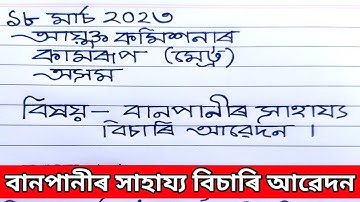 ১৮ মাৰ্চ ২০২৩
আয়ুক্ত কমিশনাৰ
কামৰূপ (মেট্ৰ)
অসম
বিষয়- বানপানীৰ সাহায্য
বিচাৰি আৱেদন ।
বানপানীৰ সাহায্য বিচাৰি আৱেদন